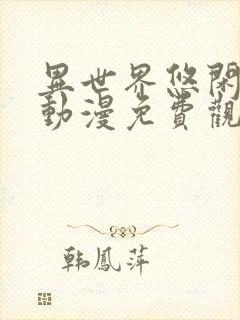 異世界悠閑
動漫免費觀
韩鳳萍